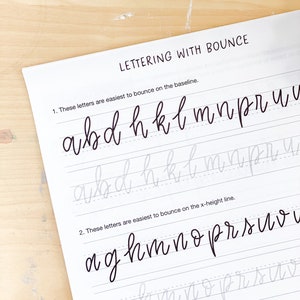 LETTERING WITH BOUNCE
1. These letters are easiest to bounce on the baseline.
a b d h k l m n p r u
a b d h k l m n p r u
2. These letters are easiest to bounce on the x-height line.
a g h m n o p r s u v